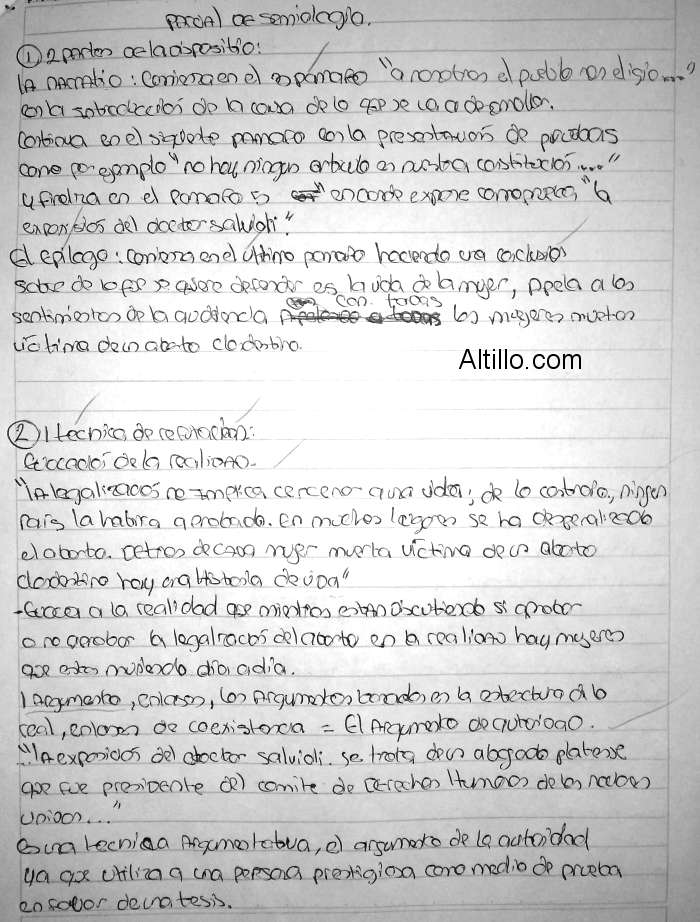 Parcial de semiología.
① 2 partes de la dispositio:
La narratio: Comienza en el párrafo "a nosotros el pueblo nos eligio....."
con la introducción de la causa de lo que se va a demostrar.
Continua en el siguiente parrafo con la presentación de pruebas
como por ejemplo "no hay ningun articulo en nuestra constitución....."
y finaliza en el parrafo 5 en donde expone como prueba, "la
exposición del doctor salvioli."
El epílogo: comienza en el último parrafo haciendo una conclusión
sobre de lo que se quiere defender es la vida de la mujer, apela a los
sentimientos de la audiencia con todas las mujeres muertas
víctima de un aborto clandestino.
Altillo.com
② 1 técnica de refutación:
Evocación de la realidad.
"La legalización no implica cercenar a una vida; de lo contrario, ningun
país la habría aprobado. En muchos lugares se ha despenalizado
el aborto. Detras de cada mujer muerta víctima de un aborto
clandestino hay una historia de vida"
-Evoca a la realidad que mientras estan discutiendo si aprobar
o no aprobar la legalización del aborto en la realidad hay mujeres
que estan muriendo día a día.
1 Argumento, enlaces, los Argumentos basados en la estructura de lo
real, enlaces de coexistencia = El Argumento de autoridad.
"La exposición del doctor salvioli. se trata de un abogado platense
que fue presidente del comite de Derechos Humanos de las naciones
unidas..."
Es una tecnica Argumentativa, el argumento de la autoridad
ya que utiliza a una persona prestigiosa como medio de prueba
en favor de una tesis.